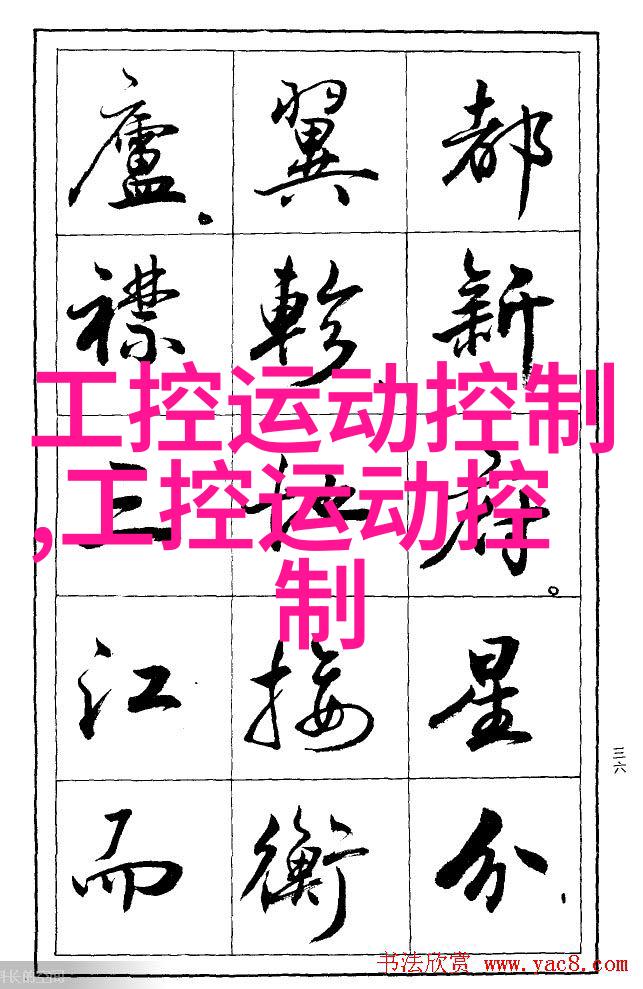 都新府。星分、
翼軫、地接衡
廬。襟三江而
工控运动控制
,工控运动控
制
三六
书法欣赏 www.yac8.com
长的空间